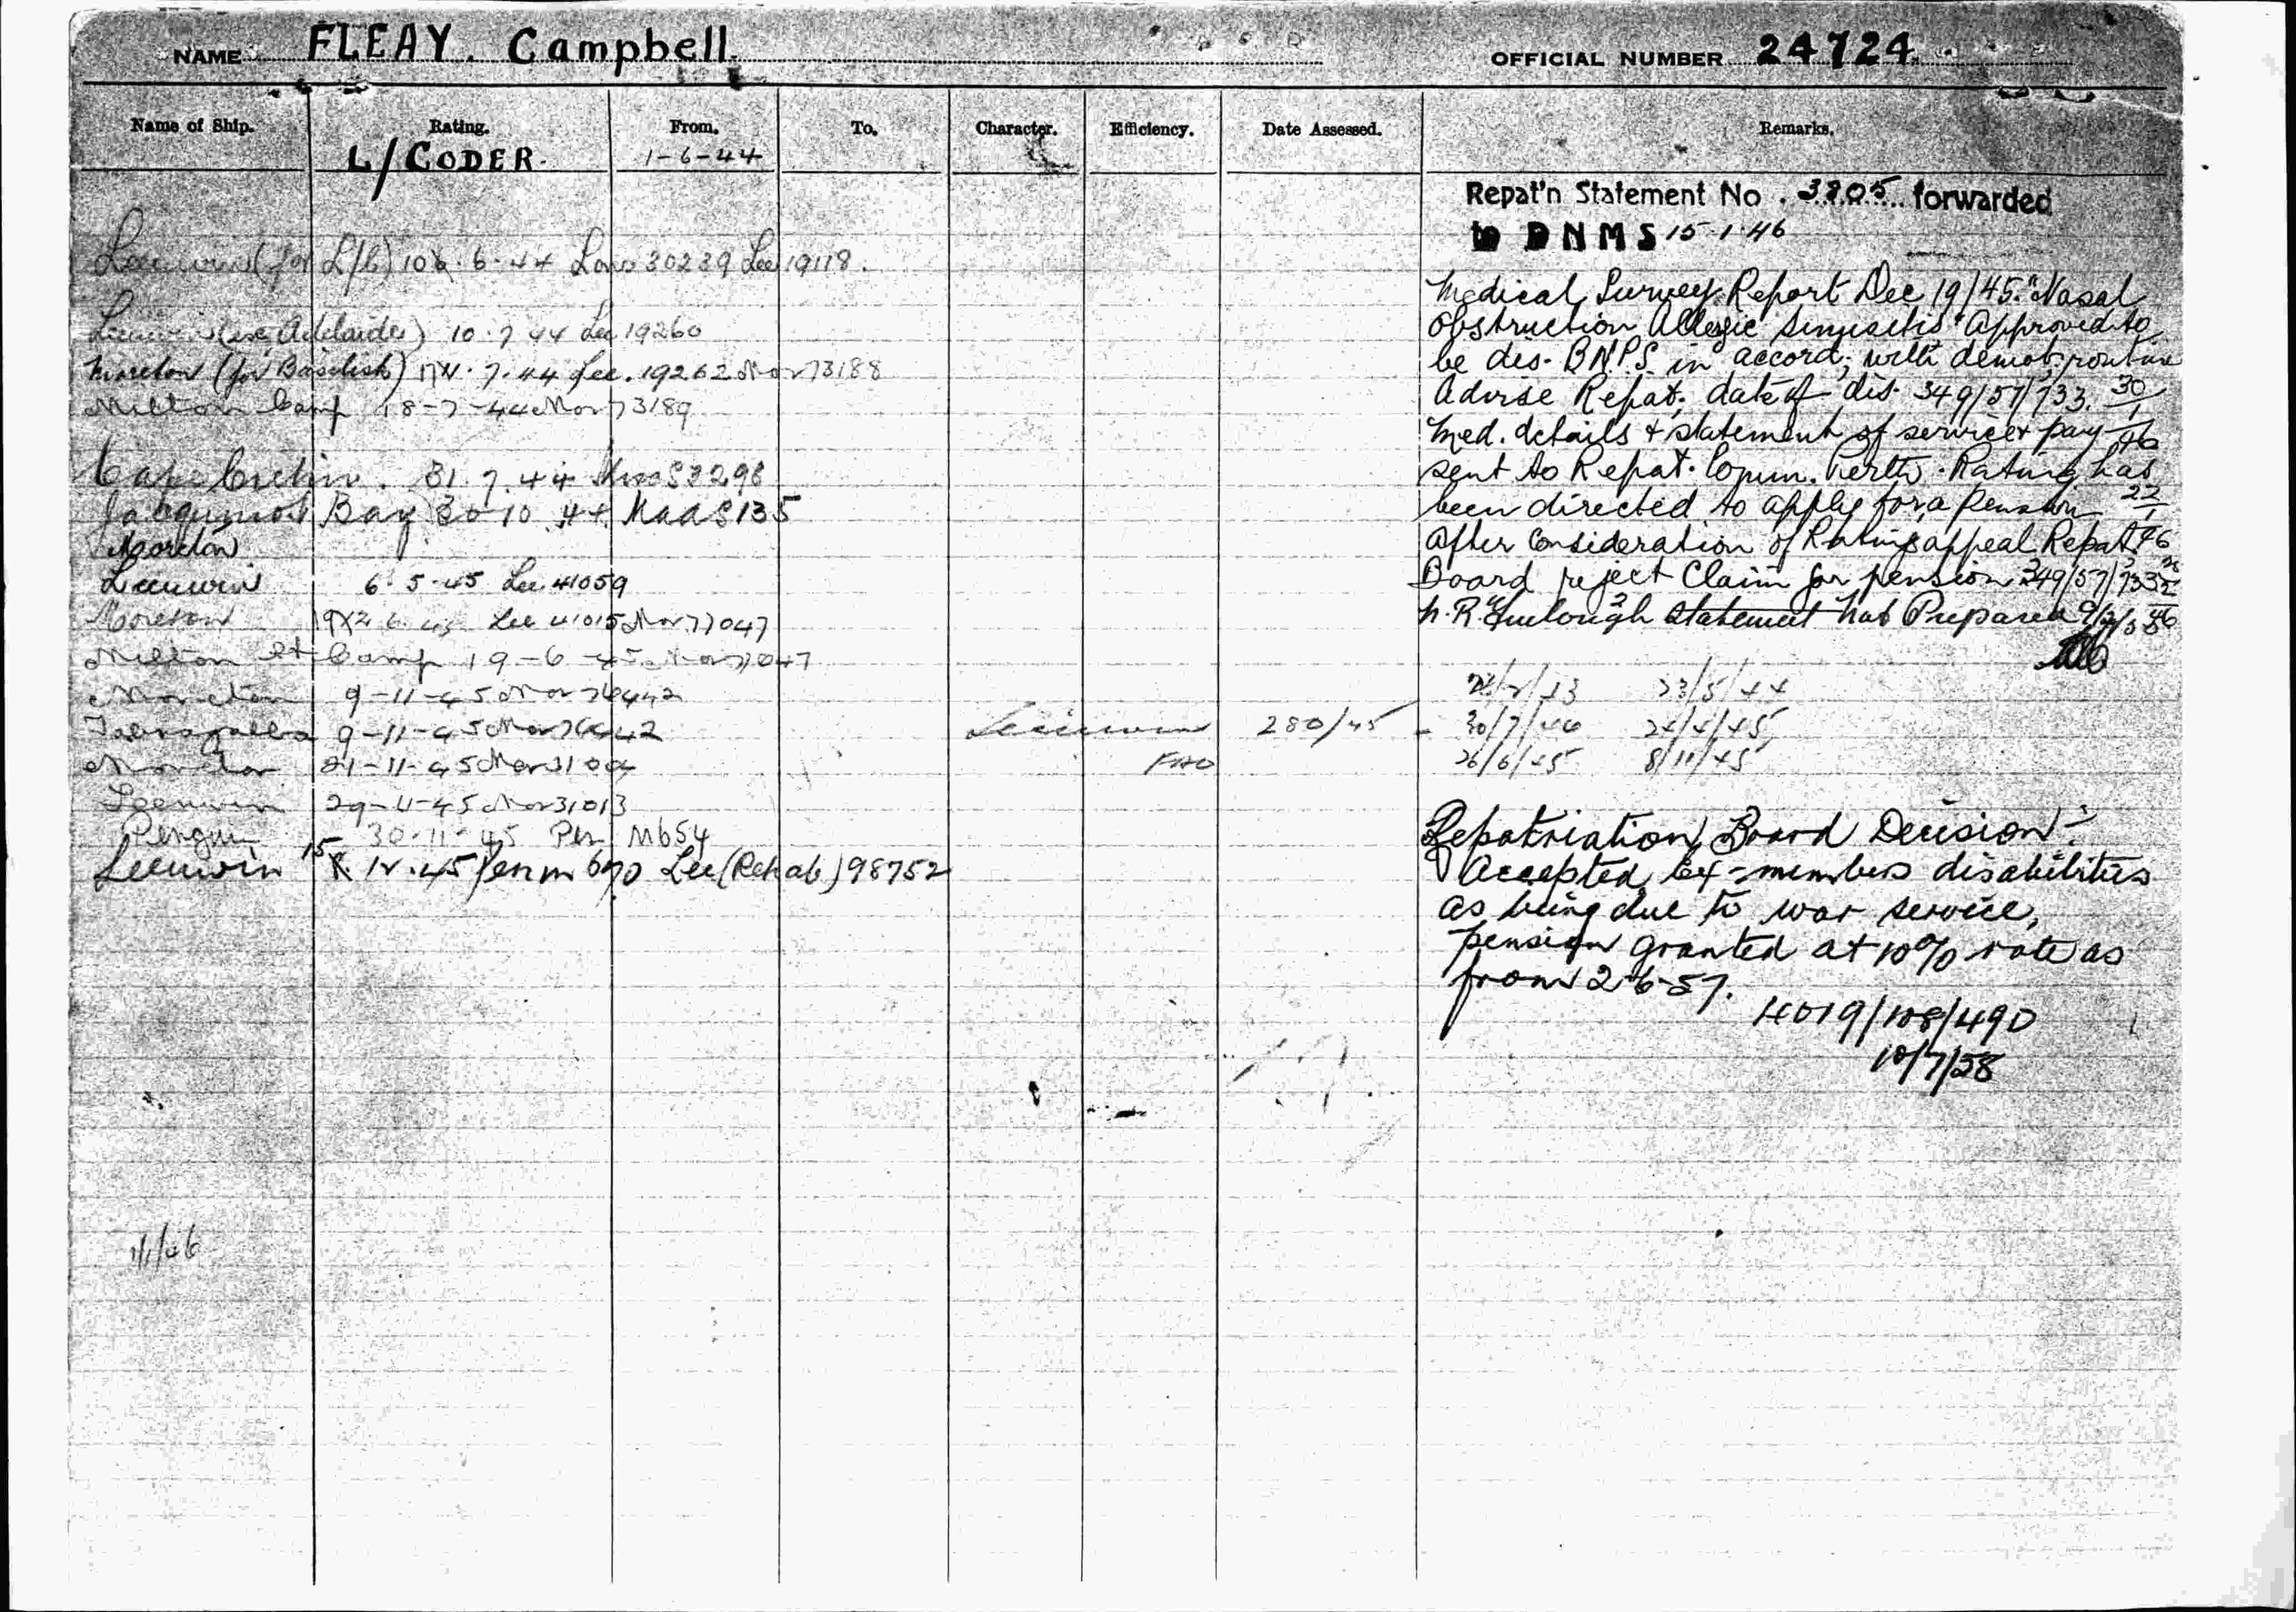 NAME FLEAY. Campbell. OFFICIAL NUMBER 24724.
Name of Ship. Rating. From. To. Character. Efficiency. Date Assessed. Remarks.
L/CODER. 1-6-44
Leeuwin (for L/C) 6.44 30239 Lee 19118.
Leeuwin (ex Adelaide) 10.7.44 Lee 19260
Moreton (for Basilisk) 7.44 Lee. 19262 Mor 73188
Milton Camp 18-7-44 Mor 73189
Cape Cretin. 31.7.44 3298
Jacquinot Bay 30 10 44 Mad S135
Moreton
Leeuwin 6.5.45 Lee 41059
Moreton Lee 41015 Mor 77047
Milton St Camp 19-6-45 Mor 77047
Moreton 9-11-45 Mor 76442
9-11-45 Mor 76442 Leeuwin 280/45
Moreton 21-11-45 Mor 31004
Leeuwin 29-11-45 Mor 31013
Penguin 30-11-45 Pen M654
Leeuwin 15 12.45 Pen M 670 Lee (Rehab) 98752
1/1/46
Repat'n Statement No. 3805 forwarded
to DNMS 15.1.46
Medical Survey Report Dec 19/45. "Nasal
Obstruction Allergic Sinusitis" Approved to
be dis. B.N.P.S. in accord; with demob; routine
Advise Repat; date of dis. 349/57/733. 30/1
Med. details & statement of service & pay 46
sent to Repat. Comm. Perth. Rating has
been directed to apply for a pension 22/1
After consideration of Ratings appeal Repat. 46
Board reject Claim for pension 349/57/733
N.R. Furlough Statement Not Prepared
23/5/44
30/7/44 24/4/45
26/6/45 8/11/45
Repatriation Board Decision:-
Accepted ex-members disabilities
as being due to war service,
pension granted at 10% rate as
from 2-6-57.
4019/108/490
10/7/58